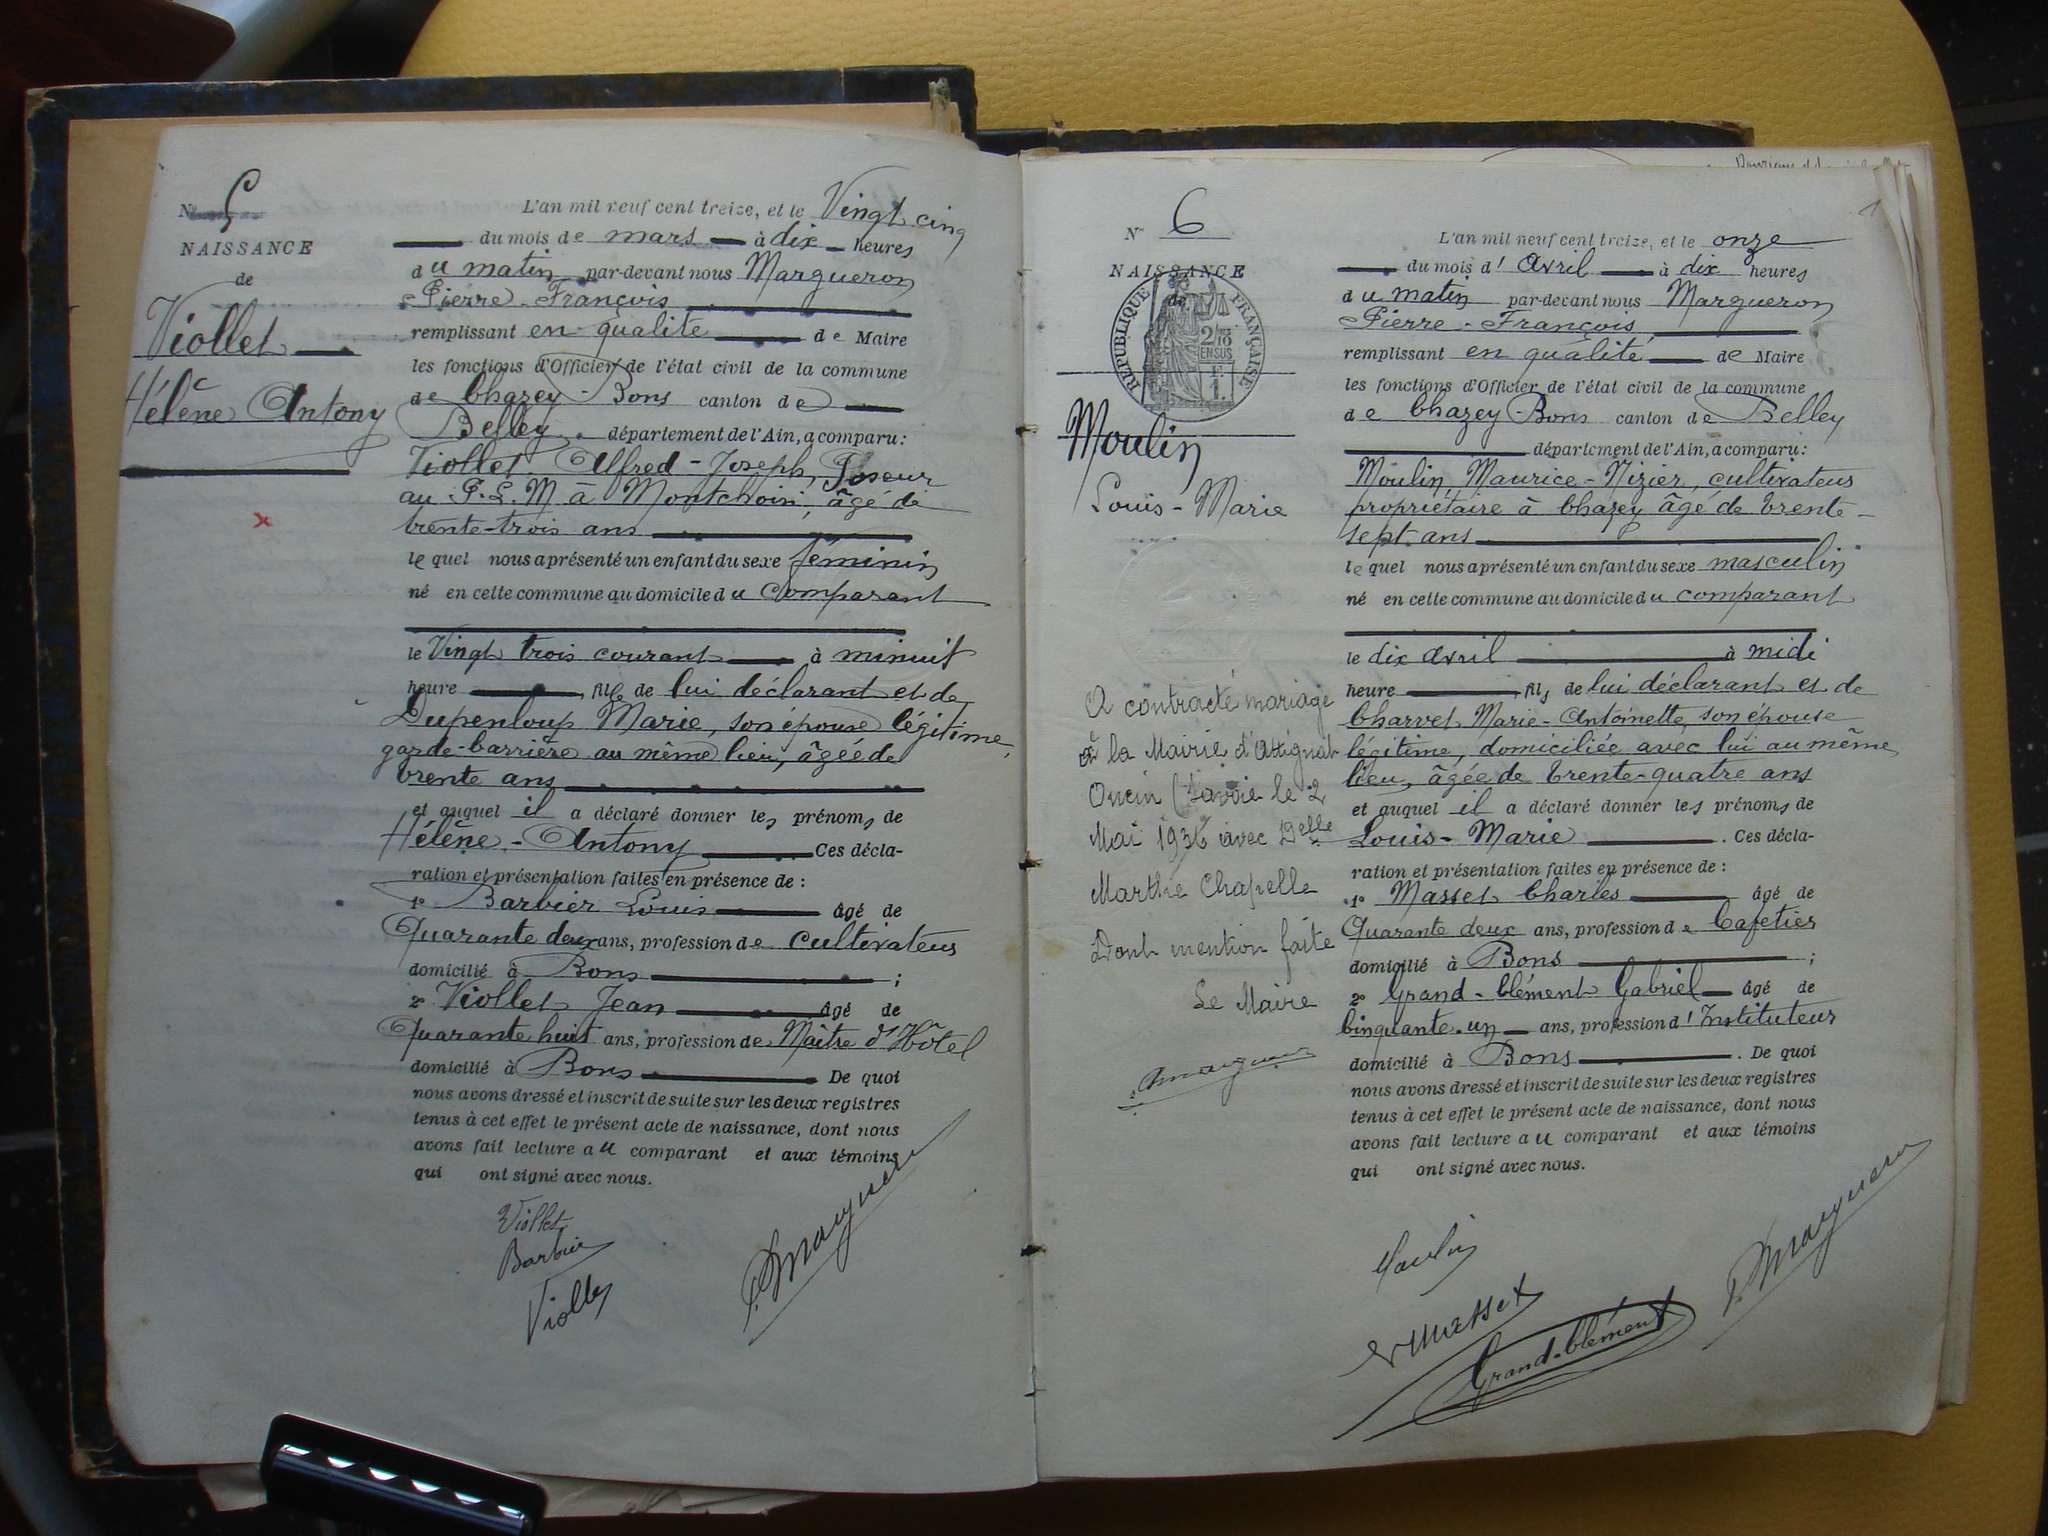 N° 5
NAISSANCE
de
Viollet
Hélène Antony
L'an mil neuf cent treize, et le Vingt cinq
du mois de mars à dix heures
du matin par-devant nous Margueron
Pierre-François
remplissant en qualité de Maire
les fonctions d'Officier de l'état civil de la commune
de Chazey-Bons canton de
Belley département de l'Ain, a comparu:
Viollet Alfred-Joseph, Poseur
au P.L.M à Montchoisi, âgé de
trente-trois ans
le quel nous a présenté un enfant du sexe féminin
né en cette commune au domicile du comparant
le Vingt trois courant à minuit
heure, fille de lui déclarant et de
Dupenloup Marie, son épouse légitime,
garde-barrière au même lieu, âgée de
trente ans
et auquel il a déclaré donner les prénoms de
Hélène-Antony Ces décla-
ration et présentation faites en présence de:
1° Barbier Louis âgé de
Quarante deux ans, profession de cultivateur
domicilié à Bons ;
2° Viollet Jean âgé de
Quarante huit ans, profession de Maître d'Hôtel
domicilié à Bons De quoi
nous avons dressé et inscrit de suite sur les deux registres
tenus à cet effet le présent acte de naissance, dont nous
avons fait lecture au comparant et aux témoins
qui ont signé avec nous.
Viollet
Barbier
Viollet
P. Margueron
N° 6
NAISSANCE
de
RÉPUBLIQUE FRANÇAISE
2/10
EN SUS
1
Moulin
Louis-Marie
A contracté mariage
à la Mairie d'Attignat
Oncin (Savoie le 2
Mai 1936 avec Delle
Marthe Chapelle
Dont mention faite
Le Maire
1
L'an mil neuf cent treize, et le onze
du mois d'Avril à dix heures
du matin par-devant nous Margueron
Pierre-François
remplissant en qualité de Maire
les fonctions d'Officier de l'état civil de la commune
de Chazey-Bons canton de Belley
département de l'Ain, a comparu:
Moulin, Maurice-Nizier, cultivateur
propriétaire à Chazey âgé de trente-
sept ans
le quel nous a présenté un enfant du sexe masculin
né en cette commune au domicile du comparant
le dix avril à midi
heure, fils de lui déclarant et de
Charvet Marie-Antoinette, son épouse
légitime, domiciliée avec lui au même
lieu, âgée de trente-quatre ans
et auquel il a déclaré donner les prénoms de
Louis-Marie. Ces décla-
ration et présentation faites en présence de:
1° Masset Charles âgé de
Quarante deux ans, profession de Cafetier
domicilié à Bons ;
2° Grand-Clément Gabriel âgé de
Cinquante-un ans, profession d'Instituteur
domicilié à Bons. De quoi
nous avons dressé et inscrit de suite sur les deux registres
tenus à cet effet le présent acte de naissance, dont nous
avons fait lecture au comparant et aux témoins
qui ont signé avec nous.
Moulin
Masset
Grand-Clément
P. Margueron